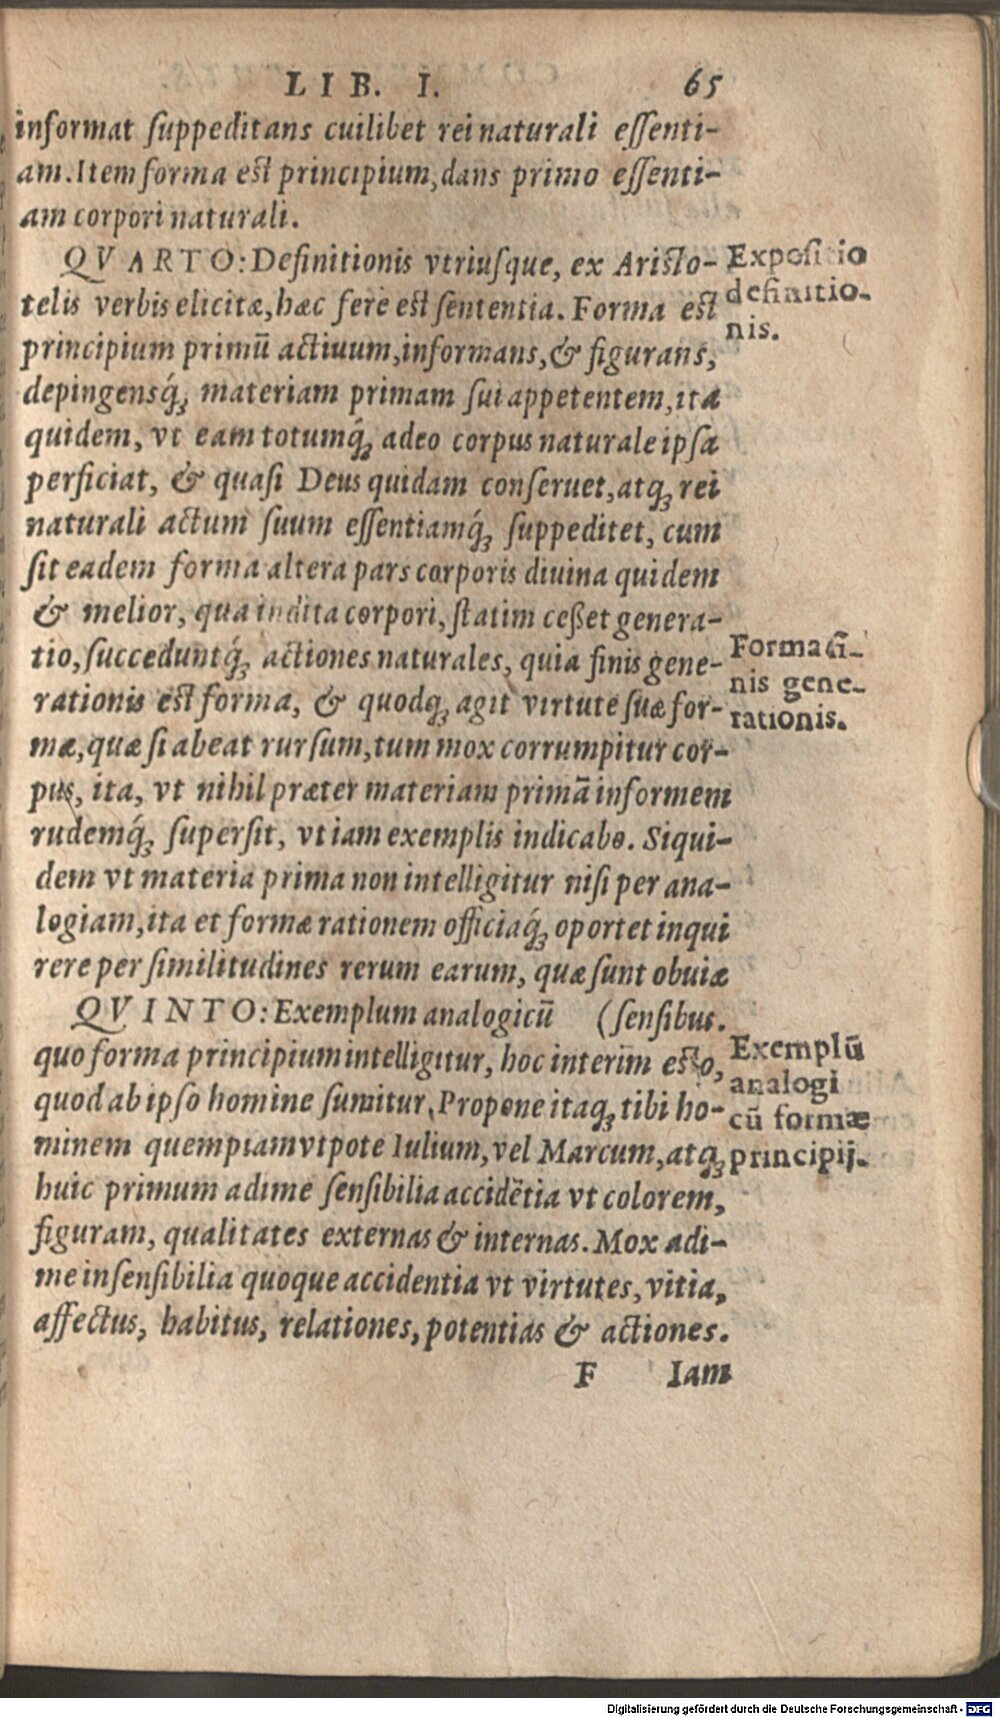 LIB. I. 65
informat ſuppeditans cuilibet rei naturali eſſenti-
am. Item forma eſt principium, dans primo eſſenti-
am corpori naturali.
QVARTO: Definitionis vtriuſque, ex Ariſto-
telis verbis elicitæ, hæc fere eſt ſententia. Forma eſt
principium primū actiuum, informans, & figurans,
depingensq́ꝫ materiam primam ſui appetentem, ita
quidem, vt eam totumq́ꝫ adeo corpus naturale ipſa
perficiat, & quaſi Deus quidam conſeruet, atqꝫ rei
naturali actum ſuum eſſentiamq́ꝫ ſuppeditet, cum
ſit eadem forma altera pars corporis diuina quidem
& melior, qua indita corpori, ſtatim ceßet genera-
tio, ſucceduntq́ꝫ actiones naturales, quia finis gene-
rationis eſt forma, & quodqꝫ agit virtute ſuæ for-
mæ, quæ ſi abeat rurſum, tum mox corrumpitur cor-
pus, ita, vt nihil præter materiam primā informem
rudemq́ꝫ ſuperſit, vt iam exemplis indicabo. Siqui-
dem vt materia prima non intelligitur niſi per ana-
logiam, ita et formæ rationem officiaq́ꝫ oportet inqui
rere per ſimilitudines rerum earum, quæ ſunt obuiæ
QVINTO: Exemplum analogicū (ſenſibus.
quo forma principium intelligitur, hoc interim eſto,
quod ab ipſo homine ſumitur. Propone itaqꝫ tibi ho-
minem quempiam vtpote Iulium, vel Marcum, atqꝫ
huic primum adime ſenſibilia accidētia vt colorem,
figuram, qualitates externas & internas. Mox adi-
me inſenſibilia quoque accidentia vt virtutes, vitia,
affectus, habitus, relationes, potentias & actiones.
F Iam
Expoſitio
definitio-
nis.
Forma fi-
nis gene-
rationis.
Exemplū
analogi
cū formæ
principij.
Digitalisierung gefördert durch die Deutsche Forschungsgemeinschaft - DFG